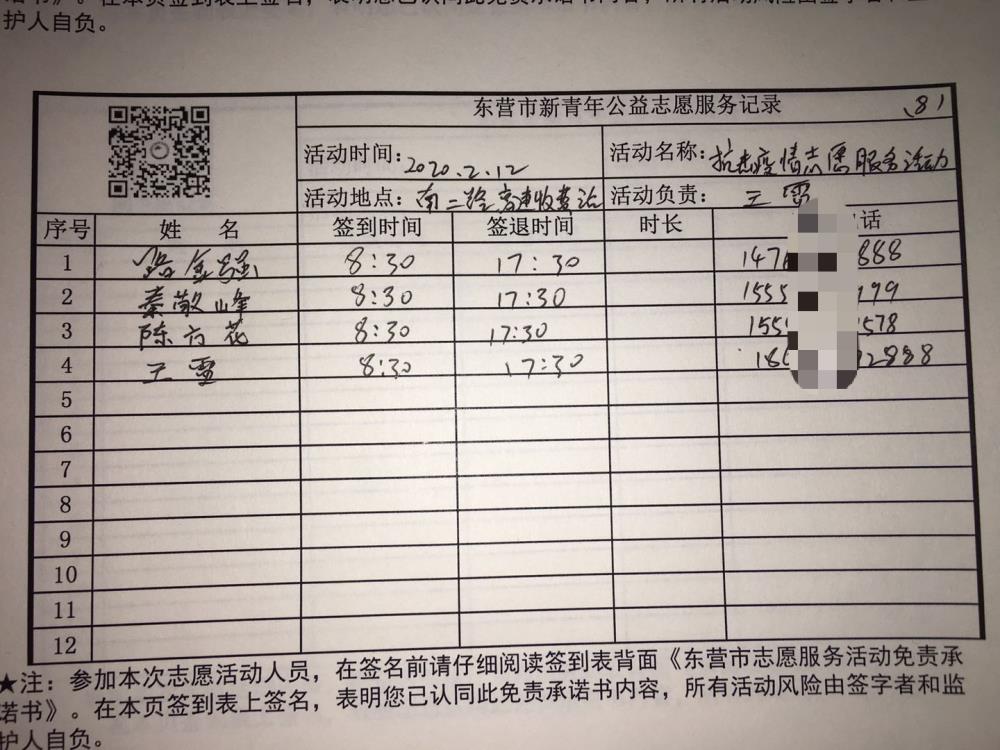 护人自负。
东营市新青年公益志愿服务记录 81
活动时间:2020.2.12 活动名称:抗击疫情志愿服务活动
活动地点:南二路高速收费站 活动负责:王雷
序号 姓 名 签到时间 签退时间 时长 话
1 8:30 17:30 147 888
2 秦敬峰 8:30 17:30 1555 199
3 陈 花 8:30 17:30 155 578
4 王雷 8:30 17:30 18 2888
5
6
7
8
9
10
11
12
★注:参加本次志愿活动人员,在签名前请仔细阅读签到表背面《东营市志愿服务活动免责承
诺书》。在本页签到表上签名,表明您已认同此免责承诺书内容,所有活动风险由签字者和监
护人自负。